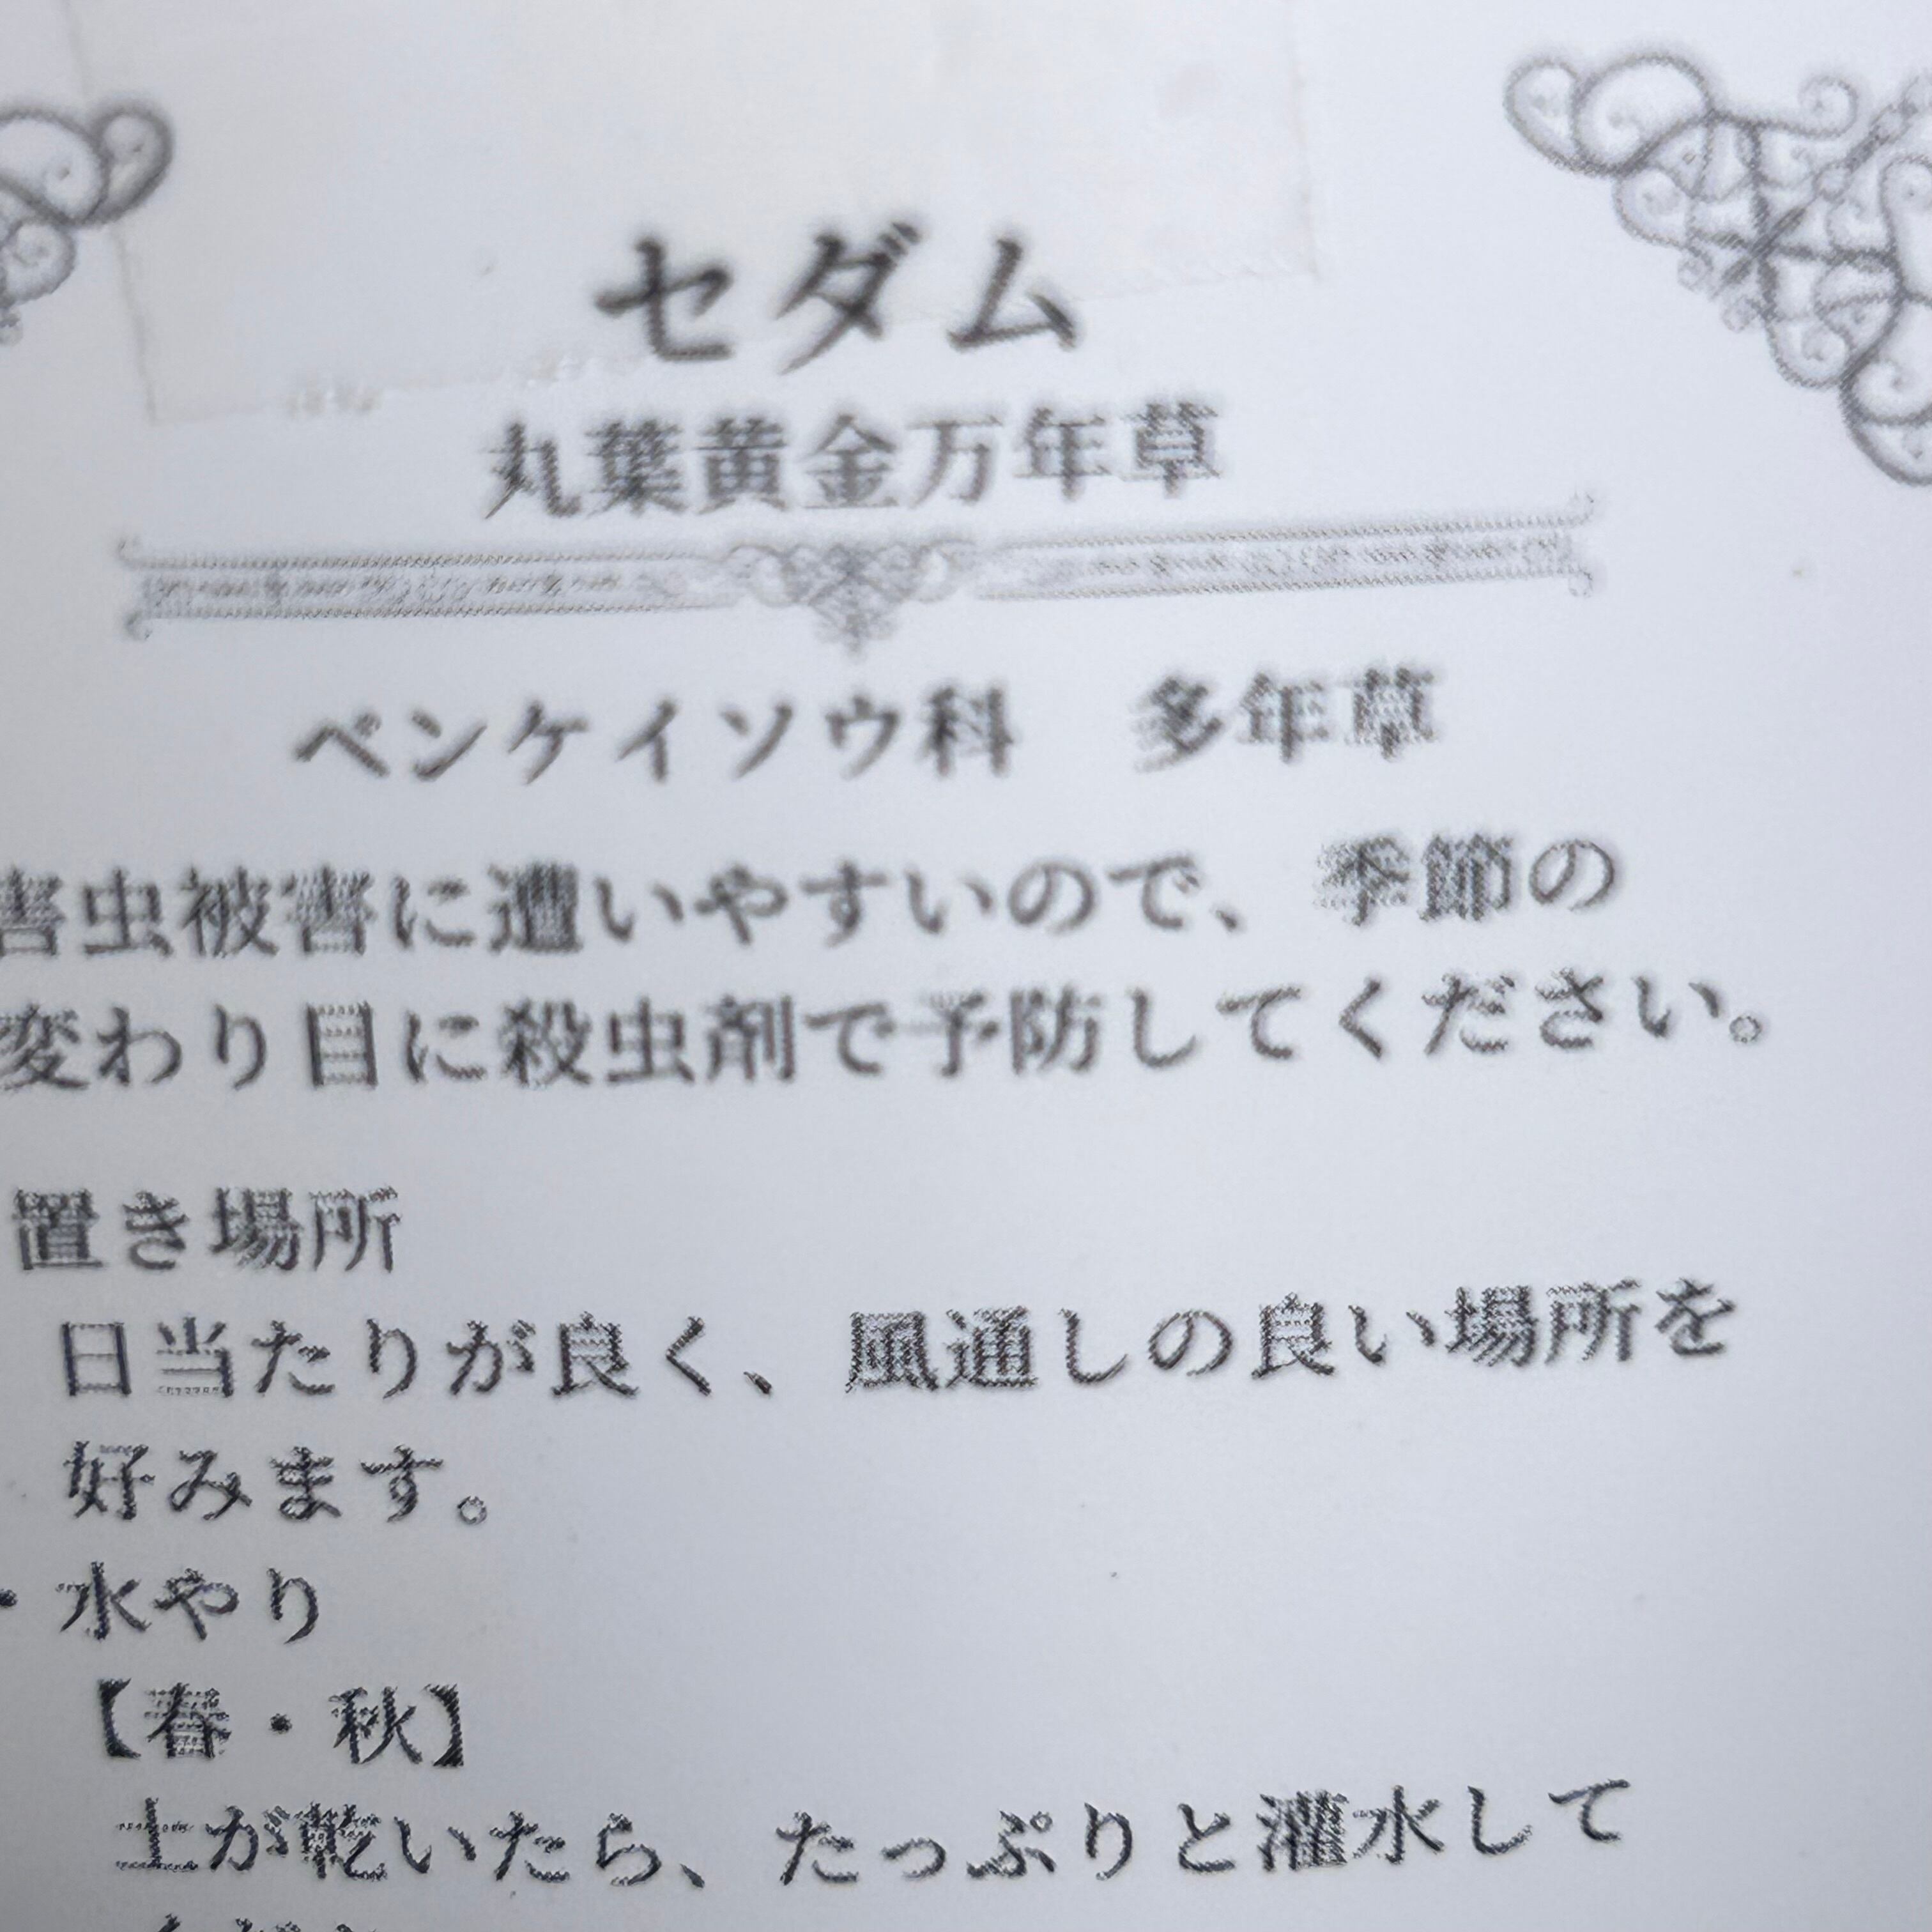 セダム
丸葉黄金万年草
ベンケイソウ科　多年草
害虫被害に遭いやすいので、季節の
変わり目に殺虫剤で予防してください。
置き場所
日当たりが良く、風通しの良い場所を
好みます。
・水やり
【春・秋】
土が乾いたら、たっぷりと灌水して